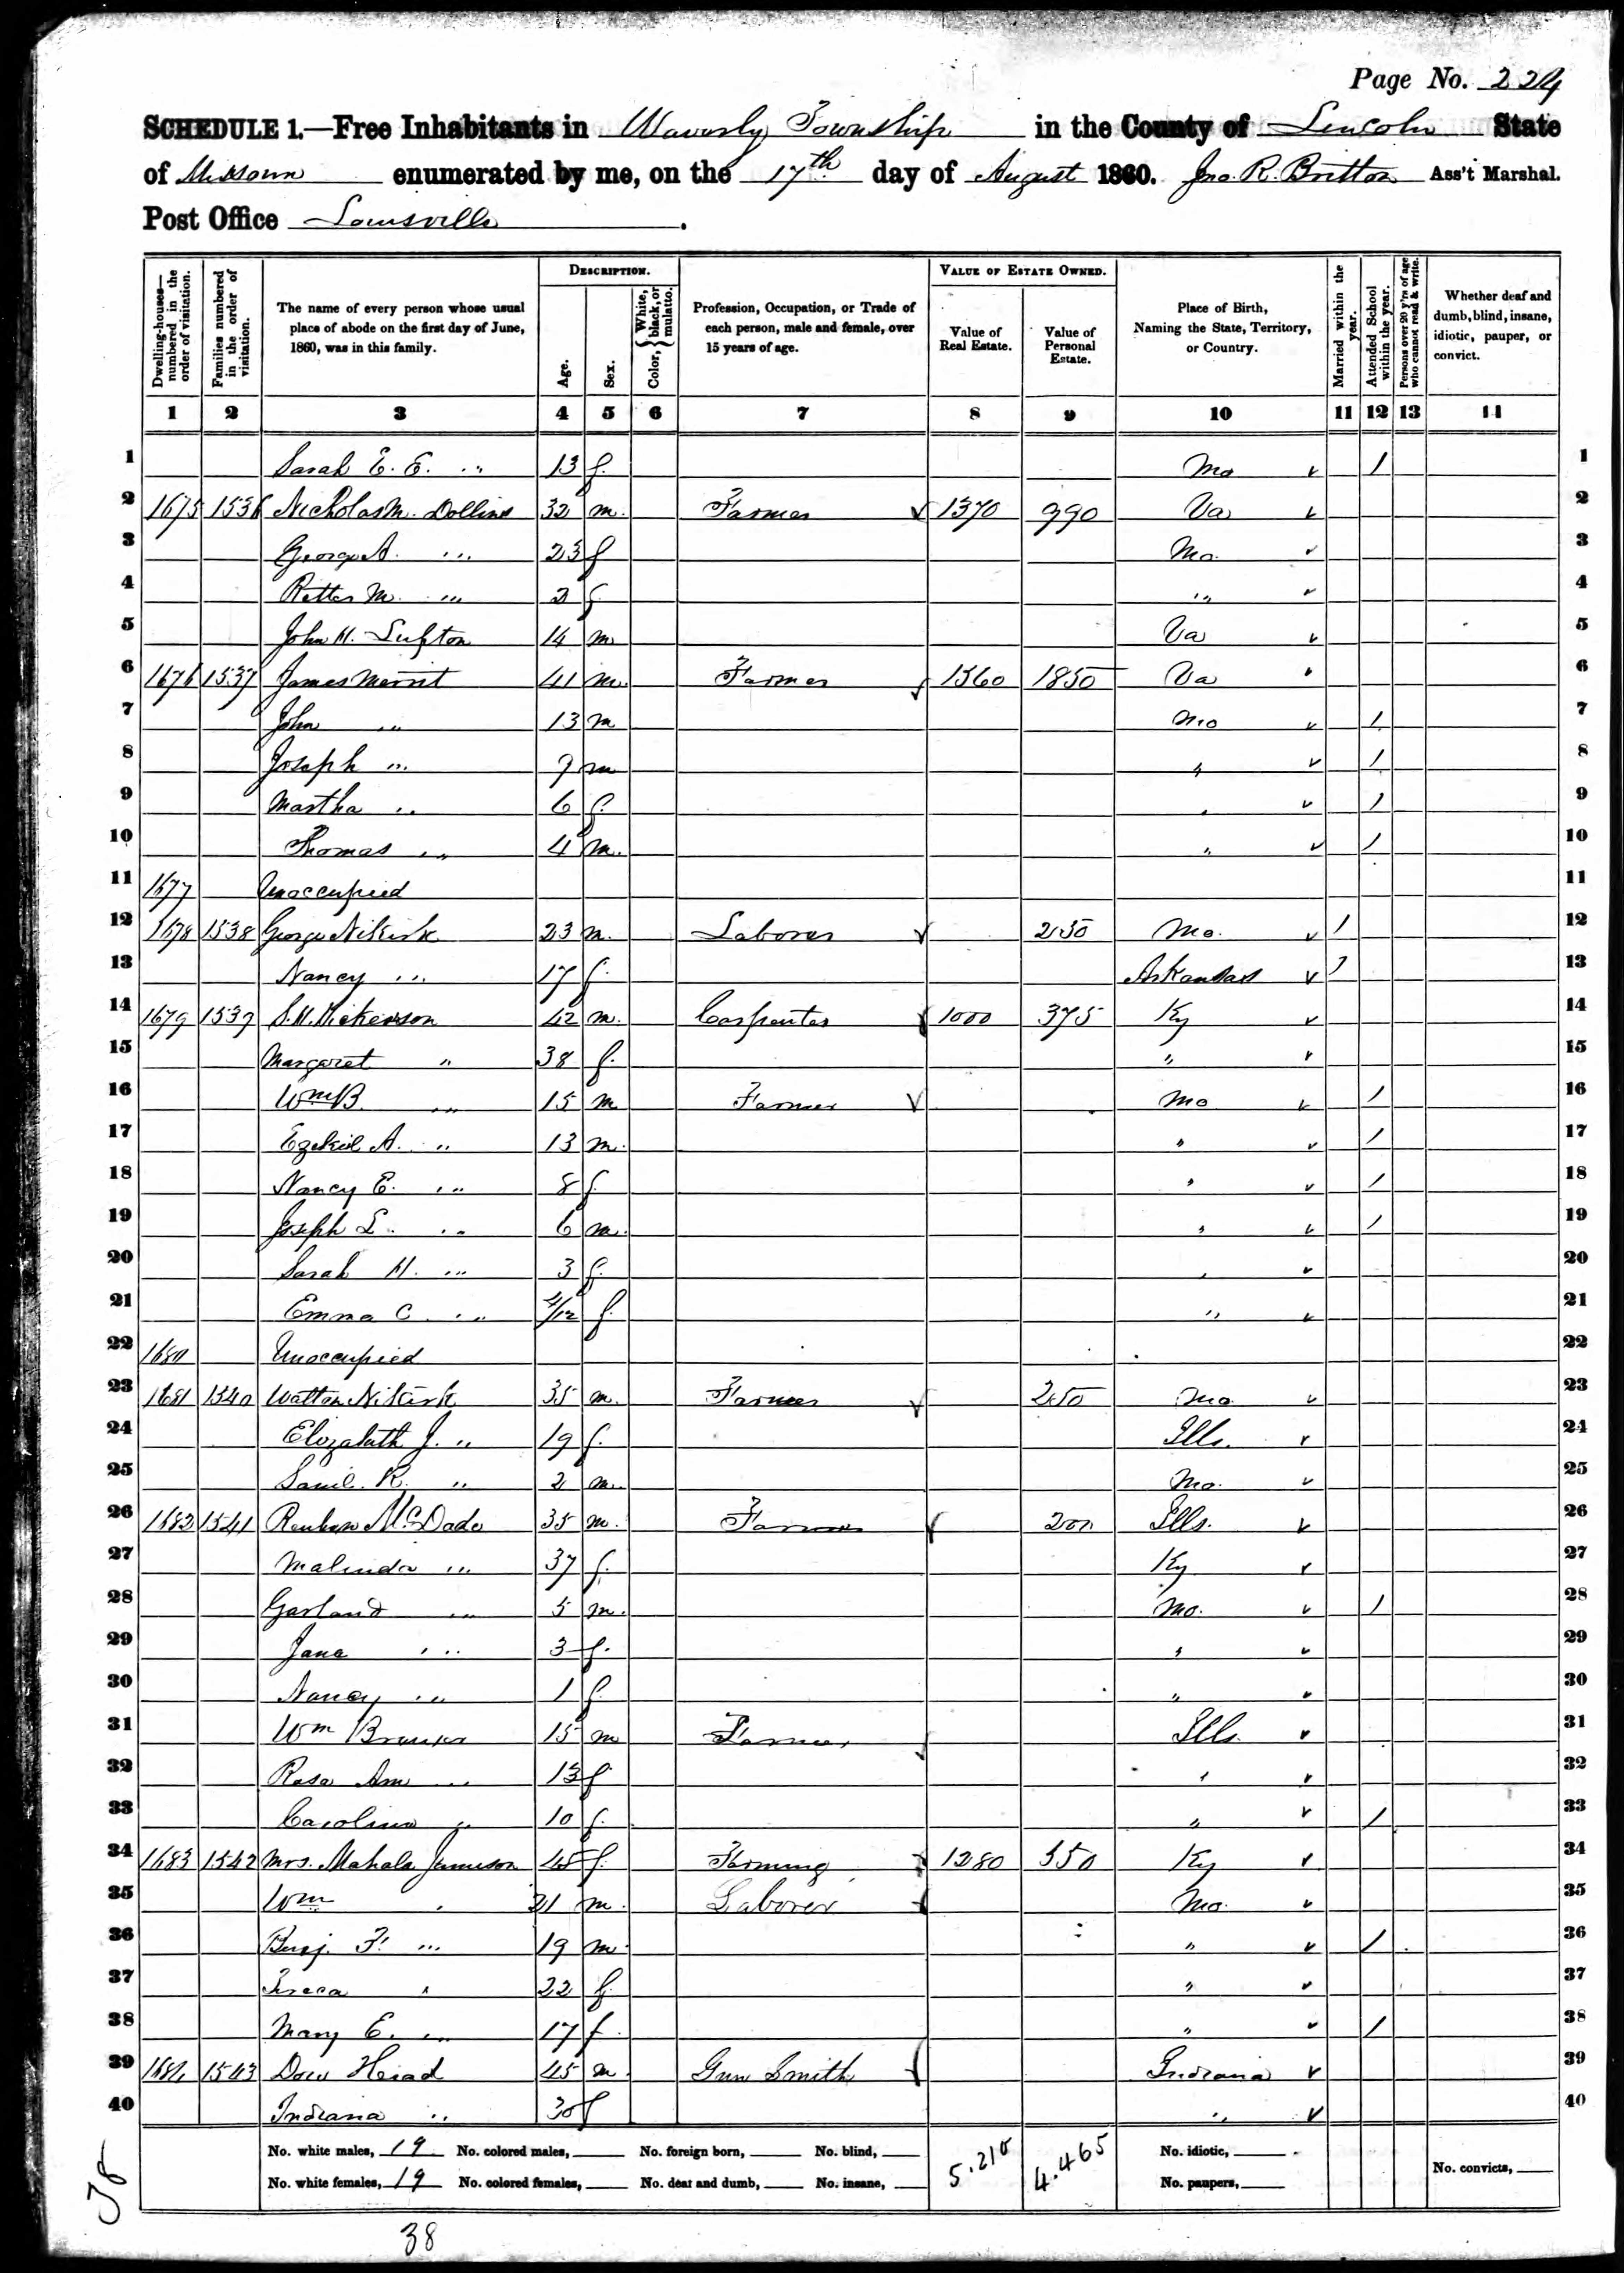 Page No. 224
SCHEDULE 1.—Free Inhabitants in Waverly Township in the County of Lincoln State
of Missouri enumerated by me, on the 17th day of August 1860. Jno. R. Britton Ass't Marshal.
Post Office Louisville.
Dwelling-houses—numbered in the order of visitation.
Families numbered in the order of visitation.
The name of every person whose usual place of abode on the first day of June, 1860, was in this family.
DESCRIPTION.
Age.
Sex.
Color, { White, black, or mulatto.
Profession, Occupation, or Trade of each person, male and female, over 15 years of age.
VALUE OF ESTATE OWNED.
Value of Real Estate.
Value of Personal Estate.
Place of Birth, Naming the State, Territory, or Country.
Married within the year.
Attended School within the year.
Persons over 20 y'rs of age who cannot read & write.
Whether deaf and dumb, blind, insane, idiotic, pauper, or convict.
1 2 3 4 5 6 7 8 9 10 11 12 13 14
1 Sarah E. E. " 13 f. Mo / 1
2 1675 1536 Nicholas M. Dollins 32 m. Farmer 1370 990 Va 2
3 George A. " 23 f Mo. 3
4 Ritter M. " 2 f. " 4
5 John H. Lupton 14 m Va 5
6 1676 1537 James Merrit 41 m. Farmer 1560 1850 Va 6
7 John " 13 m Mo / 7
8 Joseph " 9 m " / 8
9 Martha " 6 f. " / 9
10 Thomas " 4 m. " / 10
11 1677 Unoccupied 11
12 1678 1538 George Nikirk 23 m. Laborer 250 Mo. / 12
13 Nancy " 17 f. Arkansas / 13
14 1679 1539 S. H. Hickerson 42 m. Carpenter 1000 375 Ky 14
15 Margaret " 38 f. " 15
16 Wm B. " 15 m Farmer Mo / 16
17 Ezekiel A. " 13 m. " / 17
18 Nancy E. " 8 f. " / 18
19 Joseph L. " 6 m. " / 19
20 Sarah H. " 3 f. " 20
21 Emma C. " 4/12 f. " 21
22 1680 Unoccupied 22
23 1681 1540 Walton Nikirk 35 m. Farmer 250 Mo. 23
24 Elizabeth J. " 19 f. Ills. 24
25 Saml. R. " 2 m. Mo. 25
26 1682 1541 Reuben McDade 35 m. Farmer 200 Ills. 26
27 Malinda " 37 f. Ky 27
28 Garland " 5 m. Mo. / 28
29 Jane " 3 f. " 29
30 Nancy " 1 f. " 30
31 Wm 15 m Farmer Ills. 31
32 Rosa Ann " 13 f " 32
33 Caroline " 10 f. " / 33
34 1683 1542 Mrs. Mahala Jameson 45 f. Farming 1280 550 Ky 34
35 Wm " 21 m. Laborer Mo. 35
36 Benj. F. " 19 m. " / 36
37 " 22 f. " 37
38 Mary E. " 17 f. " / 38
39 1684 1543 Dow Head 45 m. Gun Smith Indiana 39
40 Indiana " 30 f " 40
No. white males, 19 No. colored males, No. foreign born, No. blind, 5.210 4.465 No. idiotic,
No. white females, 19 No. colored females, No. deaf and dumb, No. insane, No. paupers, No. convicts,
38
38